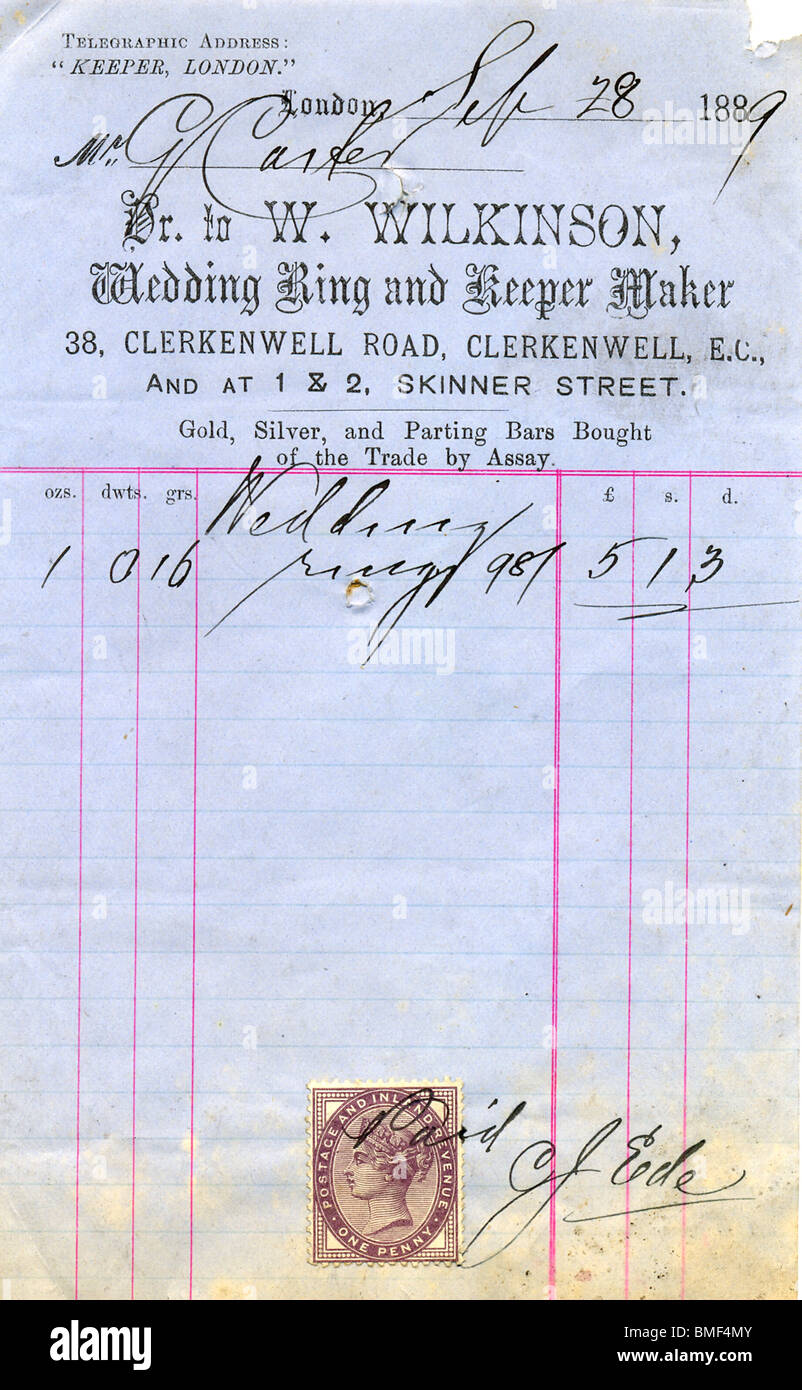 TELEGRAPHIC ADDRESS:
"KEEPER, LONDON."
London, Sep 28 1889
Mr. G Carter
Dr. to W. WILKINSON,
Wedding Ring and Keeper Maker
38, CLERKENWELL ROAD, CLERKENWELL, E.C.,
AND AT 1 & 2, SKINNER STREET.
Gold, Silver, and Parting Bars Bought
of the Trade by Assay.
ozs. dwts. grs. £ s. d.
Wedding
1 0 16 rings 98/ 5 1 3
POSTAGE AND INLAND REVENUE
ONE PENNY
Paid
CJ Ede
alamy
alamy
alamy
alamy
Image ID: BMF4MY
www.alamy.com